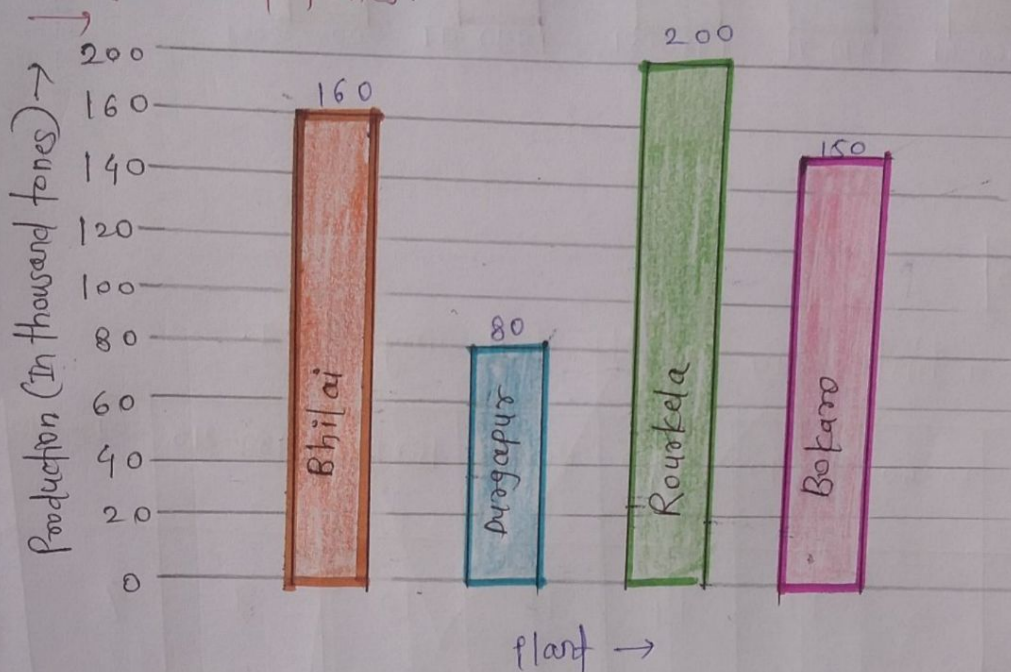 Production (In thousand tones) →
200
160
140
120
100
80
60
40
20
0
160
80
200
150
Bhilai
Durgapur
Rourkela
Bokaro
Plant →